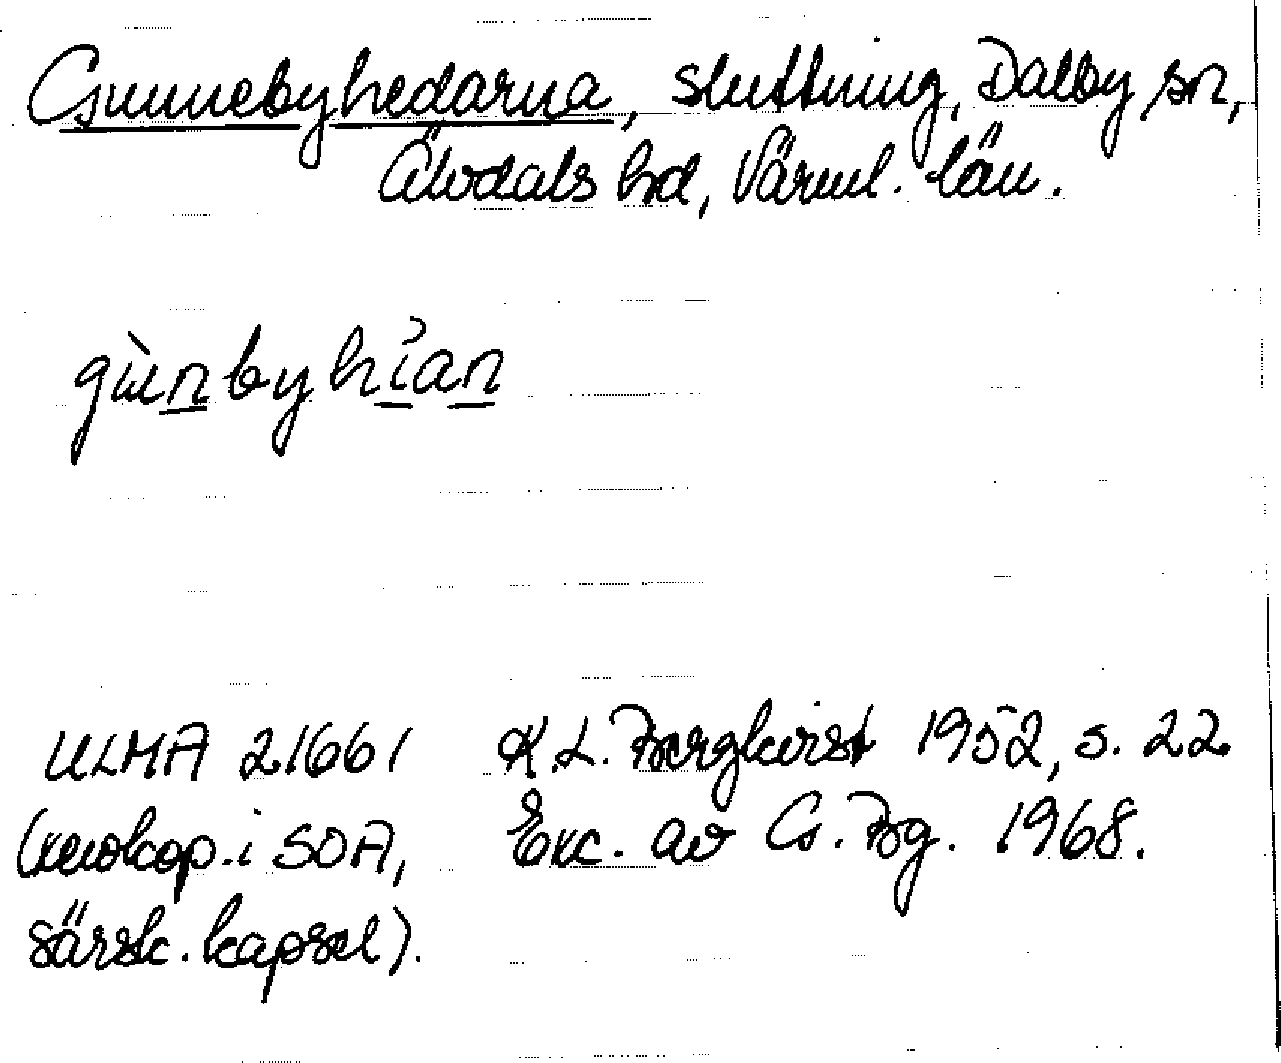 Gunnebyhedarna, sluttning, Dalby sn,
Älvdals hd, Värml. län.
gùnbyhı̄̉an
ULMA 21661 K.L. Bergkvist 1952, s. 22
(xerokop. i SOA, Exc. av G. Bg. 1968.
särsk. kapsel).